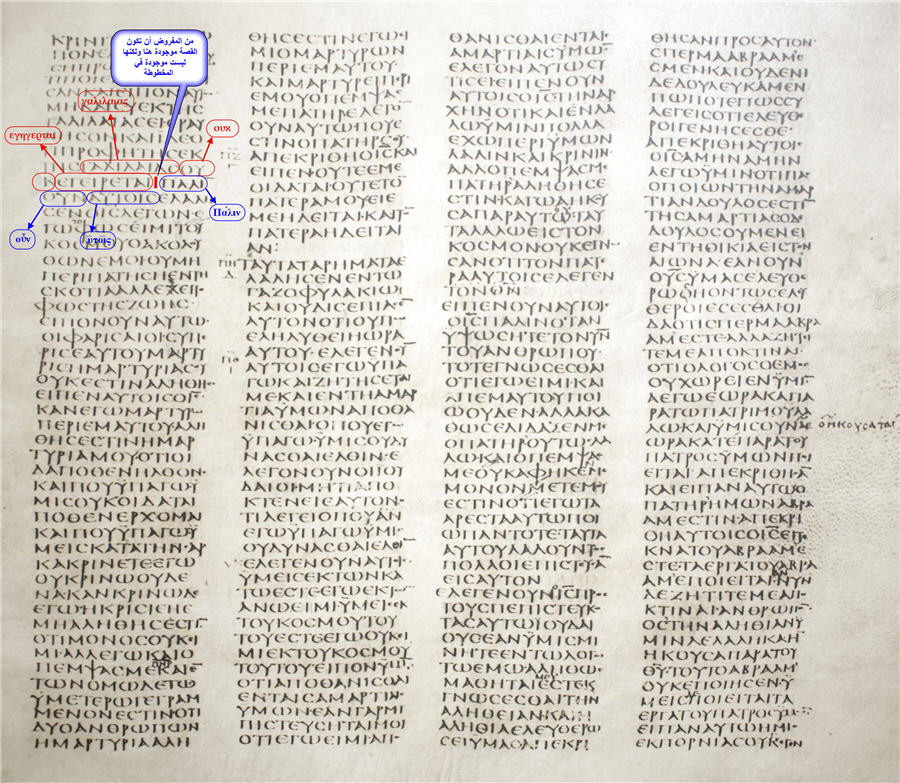 من المفروض أن تكون
القصة موجودة هنا ولكنها
ليست موجودة في
المخطوطة
γαλιλαιας
ουκ
εγηγερται
Πάλιν
οὖν
αυτοις
ΚΕΓΕΙΡΕΤΑΙ ΠΑΛΙ
ΟΥΝΑΥΤΟΙC
CΕΝΟΙCΛΕΓΩΝΕ
ΤΩΦΩCΕΙΜΙΤΟΥ
ΘΩΝΕΜΟΙΟΥΜΗ
ΠΕΡΙΠΑΤΗCΗΕΝΤΗ
CΚΟΤΙΑΑΛΛΕΧΕΙ
ΦΩCΤΗCΖΩΗC
ΕΙΠΟΝΟΥΝΑΥΤΩ
ΟΙΦΑΡΙCΑΙΟΙCΥΠΕ
ΡΙCΕΑΥΤΟΥΜΑΡΤΥ
ΡΙCΗΜΑΡΤΥΡΙΑCΟΥ
ΟΥΚΕCΤΙΝΑΛΗΘΗC
ΕΙΠΕΝΑΥΤΟΙCΟΙC
ΚΑΝΕΓΩΜΑΡΤΥΡ
ΠΕΡΙΕΜΑΥΤΟΥΑΛΗ
ΘΗCΕCΤΙΝΗΜΑΡ
ΤΥΡΙΑΜΟΥΟΤΙΟΙ
ΔΑΠΟΘΕΝΗΛΘΟΝ
ΚΑΙΠΟΥΫΠΑΓΩΫ
ΜΙCΟΥΚΟΙΔΑΤΑΙ
ΠΟΘΕΝΕΡΧΟΜΑΙ
ΚΑΙΠΟΥΫΠΑΓΩΫ
ΜΕΙCΚΑΤΑΤΗΝCΑΡ
ΚΑΚΡΙΝΕΤΕΕΓΩ
ΟΥΚΡΙΝΩΟΥΔΕ
ΝΑΚΑΝΚΡΙΝΩΔΕ
ΕΓΩΗΚΡΙCΙCΗΕ
ΜΗΑΛΗΘΗCΕCΤΙ
ΟΤΙΜΟΝΟCΟΥΚΕΙ
ΜΙΑΛΛΕΓΩΚΑΙΟ
ΠΕΜΨΑCΜΕΚΑΙΕ
ΤΩΝΟΜΩΔΕΤΩ
ΫΜΕΤΕΡΩΓΕΓΡΑΜ
ΜΕΝΟΝΕCΤΙΝΟΤΙ
ΔΥΟΑΝΘΡΩΠΩΝ
ΗΜΑΡΤΥΡΙΑΑΛΗ
ΘΗCΕCΤΙΝΕΓΩΪ
ΜΙΟΜΑΡΤΥΡΩΝ
ΠΕΡΙΕΜΑΥΤΟΥ
ΚΑΙΜΑΡΤΥΡΕΙΠΕΡΙ
ΕΜΟΥΟΠΕΜΨΑC
ΜΕΠΑΤΗΡΕΛΕΓΟ
ΟΥΝΑΥΤΩΠΟΥΕ
CΤΙΝΟΠΑΤΗΡCΟΥ
ΑΠΕΚΡΙΘΗΟΙCΚΑΙ
ΕΙΠΕΝΟΥΤΕΕΜΕ
ΟΙΔΑΤΑΙΟΥΤΕΤΟ
ΠΑΤΕΡΑΜΟΥΕΙΕ
ΜΕΗΔΕΙΤΑΙΚΑΙΤ
ΠΑΤΕΡΑΗΔΕΙΤΑΙ
ΑΝ
ΤΑΥΤΑΤΑΡΗΜΑΤΑΕ
ΛΑΛΗCΕΝΕΝΤΩ
ΓΑΖΟΦΥΛΑΚΙΩ
ΚΑΙΟΥΔΙCΕΠΙΑC
ΑΥΤΟΝΟΤΙΟΥΠΩ
ΕΛΗΛΥΘΕΙΗΩΡΑ
ΑΥΤΟΥΕΛΕΓΕΝΟΥ
ΑΥΤΟΙCΕΓΩΫΠΑ
ΓΩΚΑΙΖΗΤΗCΕΤΑΙ
ΜΕΚΑΙΕΝΤΗΑΜΑΡ
ΤΙΑΫΜΩΝΑΠΟΘΑ
ΝΙCΘΑΙΟΠΟΥΕΓΩ
ΫΠΑΓΩΫΜΙCΟΥΔΥ
ΝΑCΘΑΙΕΛΘΙΝΕ
ΛΕΓΟΝΟΥΝΟΙΙΟΥ
ΔΑΙΟΙΜΗΤΙΑΠΟ
ΚΤΕΝΕΙΕΑΥΤΟΝ
ΤΙΛΕΓΕΙΟΠΟΥΑΝ
ΕΓΩΫΠΑΓΩΫΜΙC
ΟΥΔΥΝΑCΘΑΙΕΛΘΙ
ΕΛΕΓΕΝΟΥΝΑΥΤΟΙ
ΫΜΕΙCΕΚΤΩΝΚΑ
ΤΩΕCΤΕΕΓΩΕΚΤ
ΑΝΩΕΙΜΙΫΜΕΙCΕΚ
ΤΟΥΚΟCΜΟΥΤΟΥ
ΤΟΥΕCΤΕΕΓΩΟΥΚΙ
ΜΙΕΚΤΟΥΚΟCΜΟΥ
ΤΟΥΤΟΥΕΙΠΟΝΫΜΙ
ΟΤΙΑΠΟΘΑΝΙCΘΑΙ
ΕΝΤΑΙCΑΜΑΡΤΙΑΙC
ΫΜΩΝΕΑΝΓΑΡΜΗ
ΠΙCΤΕΥCΗΤΑΙΜΟΙ
ΟΤΙΕΓΩΕΙΜΙΑΠΟ
ΘΑΝΙCΘΑΙΕΝΤΑΙC
ΑΜΑΡΤΙΑΙCΫΜΩ
ΕΛΕΓΟΝΑΥΤΩCΥ
ΤΙCΕΙΕΙΠΕΝΟΥΝ
ΑΥΤΟΙCΟΙCΤΗΝΑΡ
ΧΗΝΟΤΙΚΑΙΕΝΛΑ
ΛΩΫΜΙΝΠΟΛΛΑ
ΕΧΩΠΕΡΙΫΜΩΝ
ΛΑΛΙΝΚΑΙΚΡΙΝΙΝ
ΑΛΛΟΠΕΜΨΑCΜΕ
ΠΑΤΗΡΑΛΗΘΗCΕ
CΤΙΝΚΑΓΩΑΗΚΟΥ
CΑΠΑΡΑΥΤΟΥΤΑΥ
ΤΑΛΑΛΩΕΙCΤΟΝ
ΚΟCΜΟΝΟΥΚΕΓΝΩ
CΑΝΟΤΙΤΟΝΠΑΤ
ΡΑΑΥΤΟΙCΕΛΕΓΕΝ
ΤΟΝΘΝ
ΕΙΠΕΝΟΥΝΑΥΤΟΙC
ΟΙCΠΑΛΙΝΟΤΑΝ
ΫΨΩCΗΤΕΤΟΝΥΝ
ΤΟΥΑΝΘΡΩΠΟΥ
ΤΟΤΕΓΝΩCΕCΘΑΙ
ΟΤΙΕΓΩΕΙΜΙΚΑΙ
ΑΠΕΜΑΥΤΟΥΠΟΙ
ΩΟΥΔΕΝΑΛΛΑΚΑ
ΘΩCΕΔΙΔΑΞΕΝΜΕ
ΟΠΑΤΗΡΟΥΤΩΛΑ
ΛΩΚΑΙΟΠΕΜΨΑC
ΜΕΟΥΚΑΦΗΚΕΝΜΕ
ΜΟΝΟΝΜΕΤΕΜΟΥ
ΕCΤΙΝΟΤΙΕΓΩΤΑ
ΑΡΕCΤΑΑΥΤΩΠΟΙ
ΩΠΑΝΤΟΤΕΤΑΥΤΑ
ΑΥΤΟΥΛΑΛΟΥΝΤ
ΠΟΛΛΟΙΕΠΙCΤΕΥCΑ
ΕΙCΑΥΤΟΝ
ΕΛΕΓΕΝΟΥΝΟΙCΠΡC
ΤΟΥCΠΕΠΙCΤΕΥΚ
ΤΑCΑΥΤΩΙΟΥΔΑΙ
ΟΥCΕΑΝΫΜΙCΜΙ
ΝΗΤΕΕΝΤΩΛΟΓΩ
ΤΩΕΜΩΑΛΗΘΩC
ΜΑΘΗΤΑΙΕCΤΕΚΑΙ
ΓΝΩCΕCΘΑΙΤΗΝ
ΑΛΗΘΕΙΑΝΚΑΙΗ
ΑΛΗΘΙΑΕΛΕΥΘΕΡΩ
CΕΙΫΜΑCΑΠΕΚΡΙ
ΘΗCΑΝΠΡΟCΑΥΤΟΝ
CΠΕΡΜΑΑΒΡΑΑΜΕ
CΜΕΝΚΑΙΟΥΔΕΝΙ
ΔΕΔΟΥΛΕΥΚΑΜΕΝ
ΠΩΠΟΤΕΠΩCCΥ
ΛΕΓΕΙCΟΤΙΕΛΕΥΘΕ
ΡΟΙΓΕΝΗCΕCΘΕ
ΑΠΕΚΡΙΘΗΑΥΤΟΙC
ΟΙCΑΜΗΝΑΜΗΝ
ΛΕΓΩΫΜΙΝΟΤΙΠΑC
ΟΠΟΙΩΝΤΗΝΑΜΑΡ
ΤΙΑΝΔΟΥΛΟCΕCΤΙ
ΤΗCΑΜΑΡΤΙΑCΟΔΕ
ΔΟΥΛΟCΟΥΜΕΝΕΙ
ΕΝΤΗΟΙΚΙΑΕΙCΤ
ΑΙΩΝΑΕΑΝΟΥΝ
ΟΥCΫΜΑCΕΛΕΥΘΕ
ΡΩCΗΟΝΤΩCΕΛΕΥ
ΘΕΡΟΙΕCΕCΘΑΙΟΙ
ΔΑΟΤΙCΠΕΡΜΑΑΒΡΑ
ΑΜΕCΤΕΑΛΛΑΖΗΤΙ
ΤΕΜΕΑΠΟΚΤΙΝΑΙ
ΟΤΙΟΛΟΓΟCΟΕΜΟC
ΟΥΧΩΡΕΙΕΝΫΜΙΝ
ΑΕΓΩΕΩΡΑΚΑΠΑ
ΡΑΤΩΠΑΤΡΙΜΟΥΛΑ
ΛΩΚΑΙΫΜΙCΟΥΝΑΕ
ΟΗΚΟΥCΑΤΑΙ
ΩΡΑΚΑΤΕΠΑΡΑΤΟΥ
ΠΑΤΡΟCΫΜΩΝΠΟΙ
ΕΙΤΑΙΑΠΕΚΡΙΘΗCΑ
ΚΑΙΕΙΠΑΝΑΥΤΩΟ
ΠΑΤΗΡΗΜΩΝΑΒΡΑ
ΑΜΕCΤΙΝΑΠΕΚΡΙ
ΘΗΑΥΤΟΙCΟΙCΕΙΤΕ
ΚΝΑΤΟΥΑΒΡΑΑΜΕ
CΤΕΤΑΕΡΓΑΤΟΥΑΒΡΑ
ΑΜΕΠΟΙΕΙΤΑΙΝΥΝ
ΔΕΖΗΤΙΤΕΜΕΑΠΟ
ΚΤΙΝΑΙΑΝΘΡΩΠΟΝ
ΟCΤΗΝΑΛΗΘΙΑΝΫ
ΜΙΝΛΕΛΑΛΗΚΑΗΝ
ΗΚΟΥCΑΠΑΡΑΤΟΥ
ΘΥΤΟΥΤΟΑΒΡΑΑΜ
ΟΥΚΕΠΟΙΗCΕΝΫ
ΜΕΙCΠΟΙΕΙΤΑΙΤΑ
ΕΡΓΑΤΟΥΠΑΤΡΟCΫΜΩ
ΕΙΠΑΝΑΥΤΩΗΜΙC
ΕΚΠΟΡΝΙΑCΟΥΚΕΓΕΝ